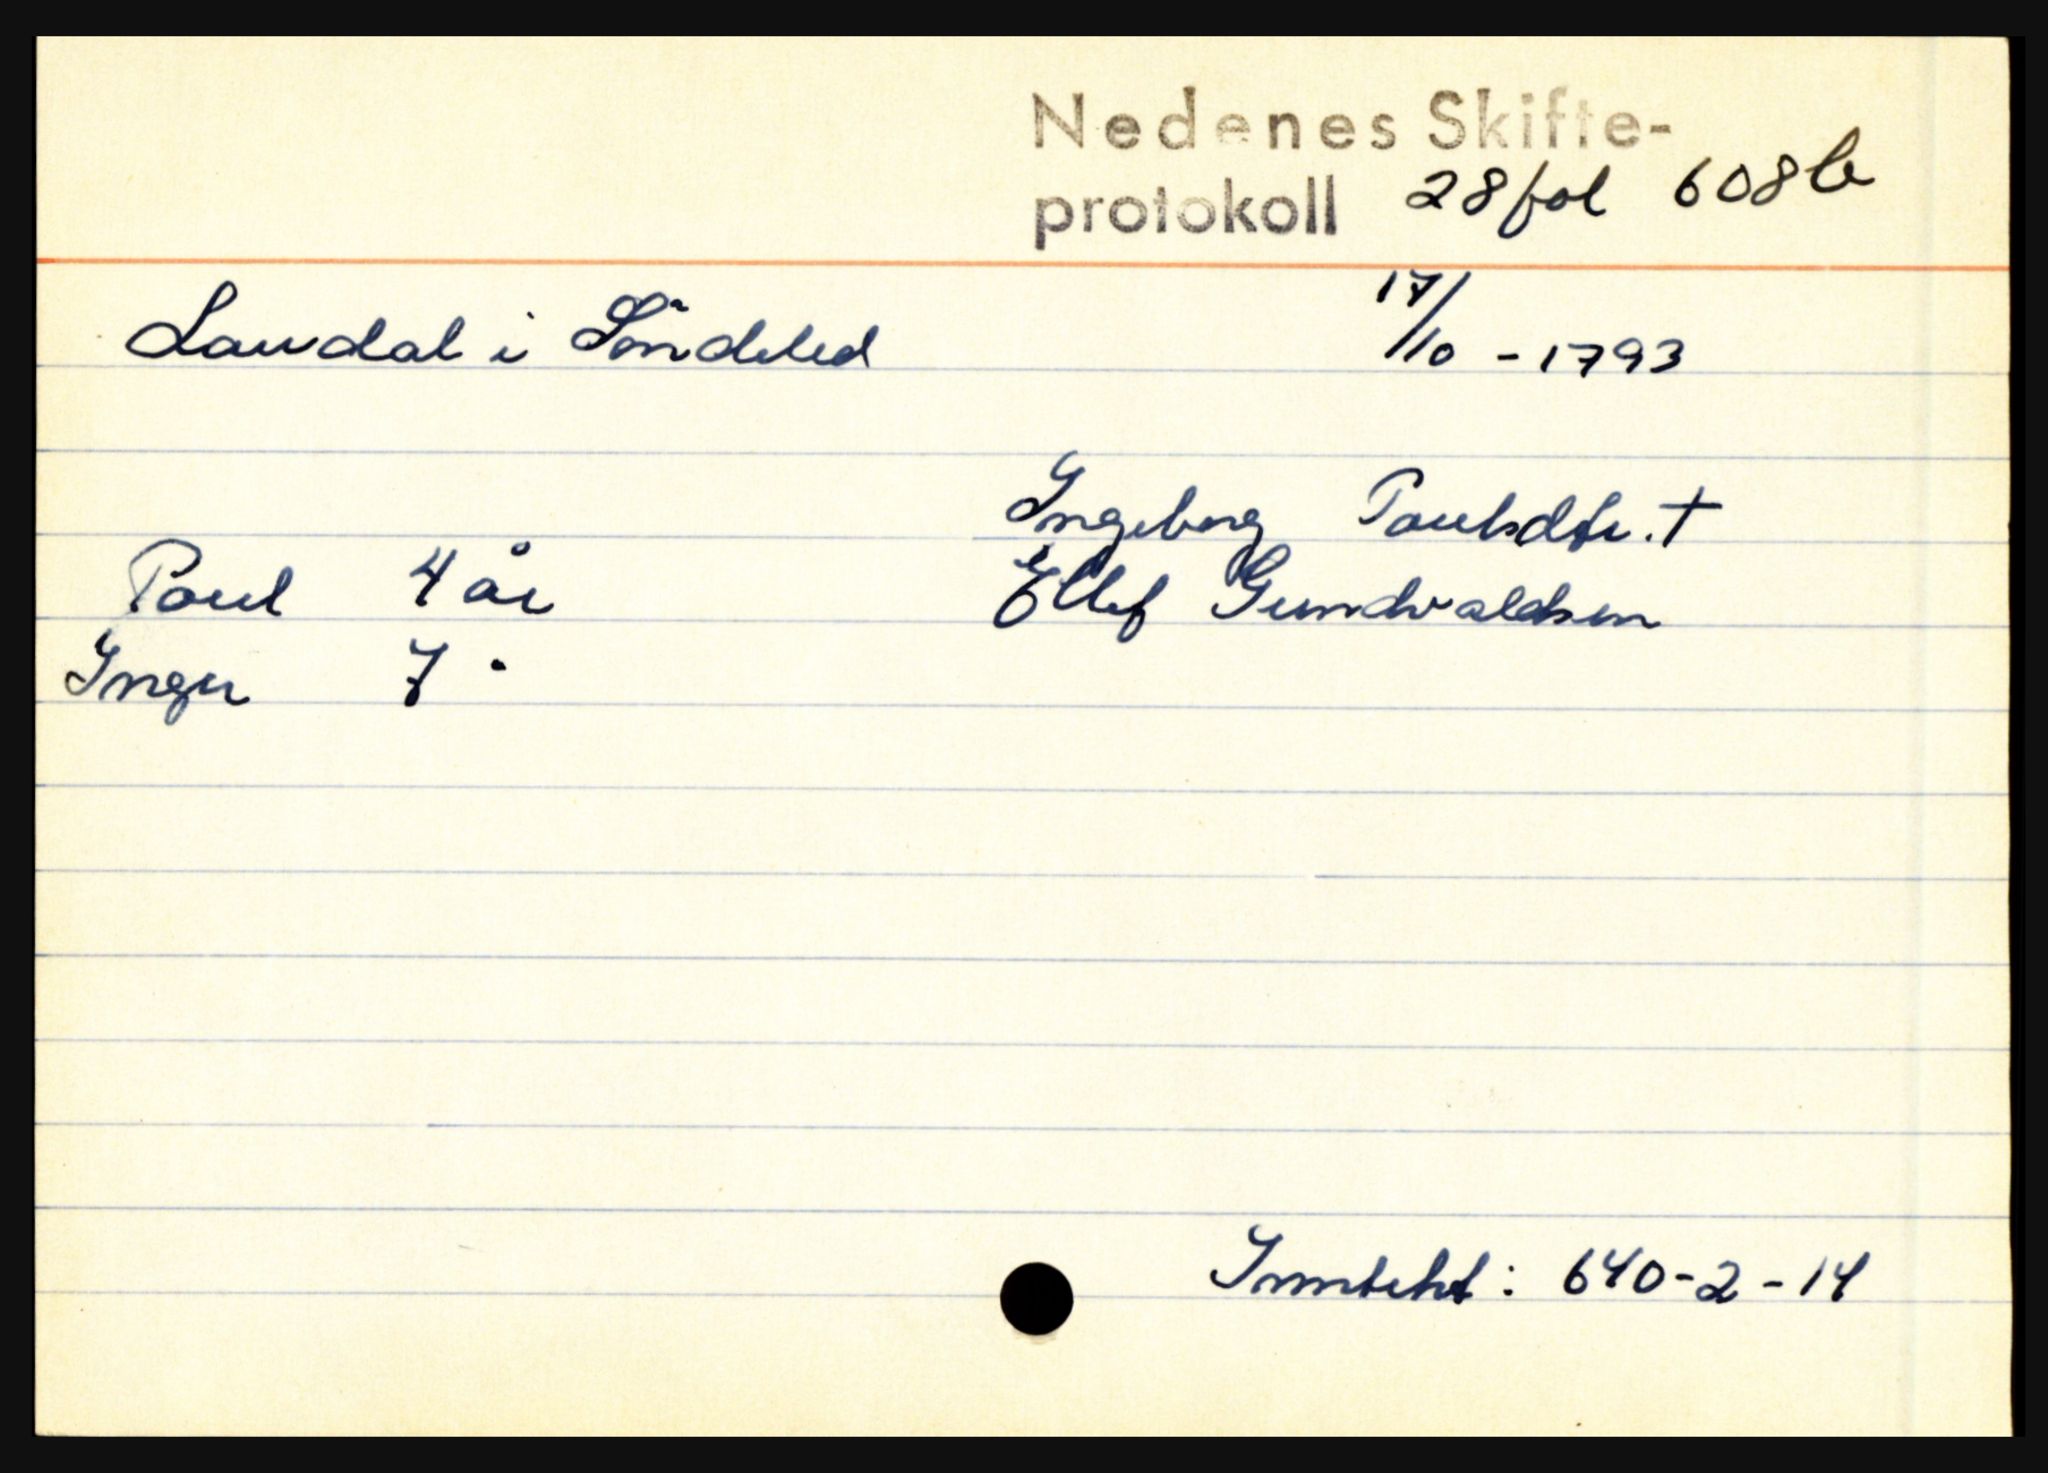 Nedenes Skifte-
protokoll 28 fol 608 b
Laudal i Söndeled 17/10 - 1793
Ingeborg Paulsdtr. †
Paul 4 år Ellef Gundvaldsen
Inger 7 "
Inntekt: 640-2-14